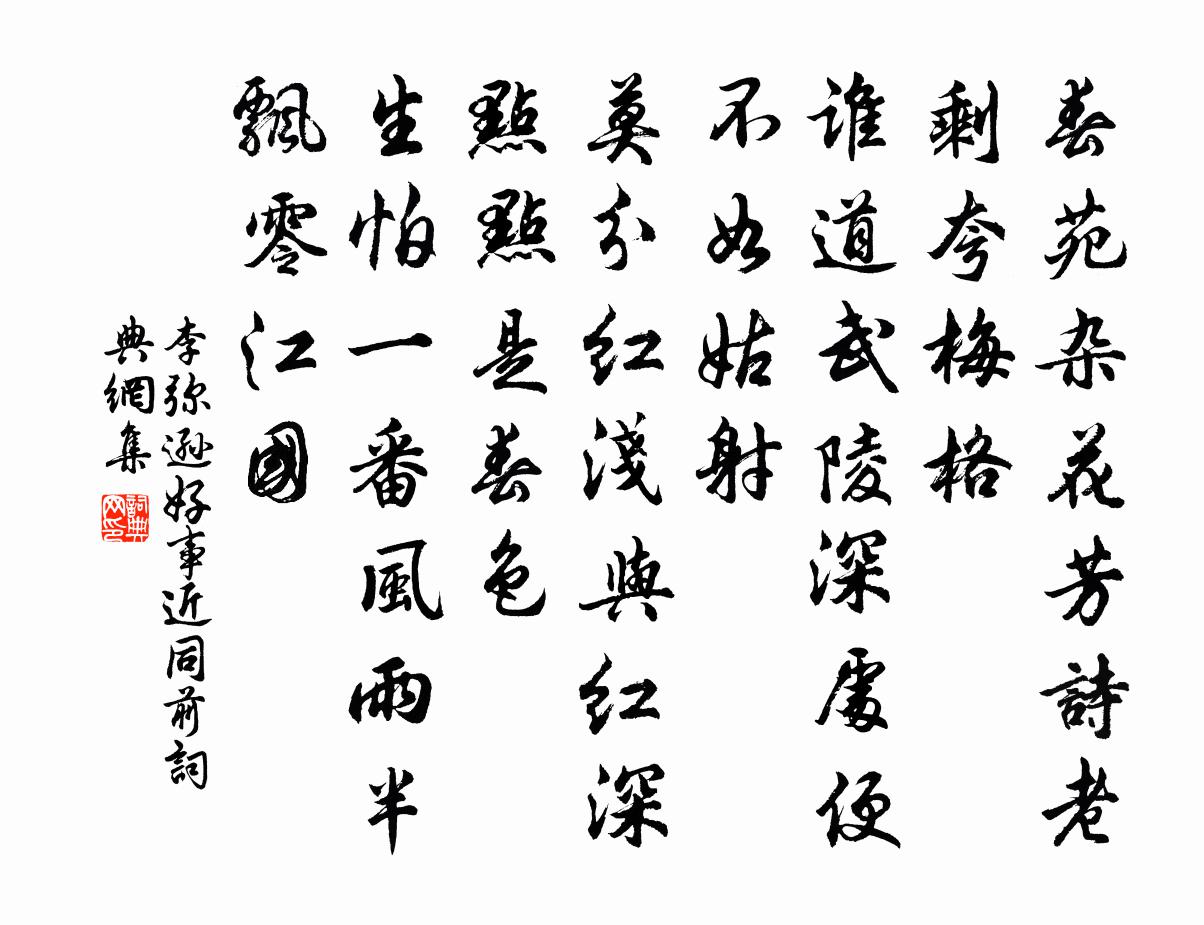 春苑杂花芳詩老
剩夸梅格
谁道武陵深處便
不如姑射
莫分红淺與红深
點點是春色
生怕一番風雨半
飄零江國
李弥遜好事近同前詞
典網集
詞典网印